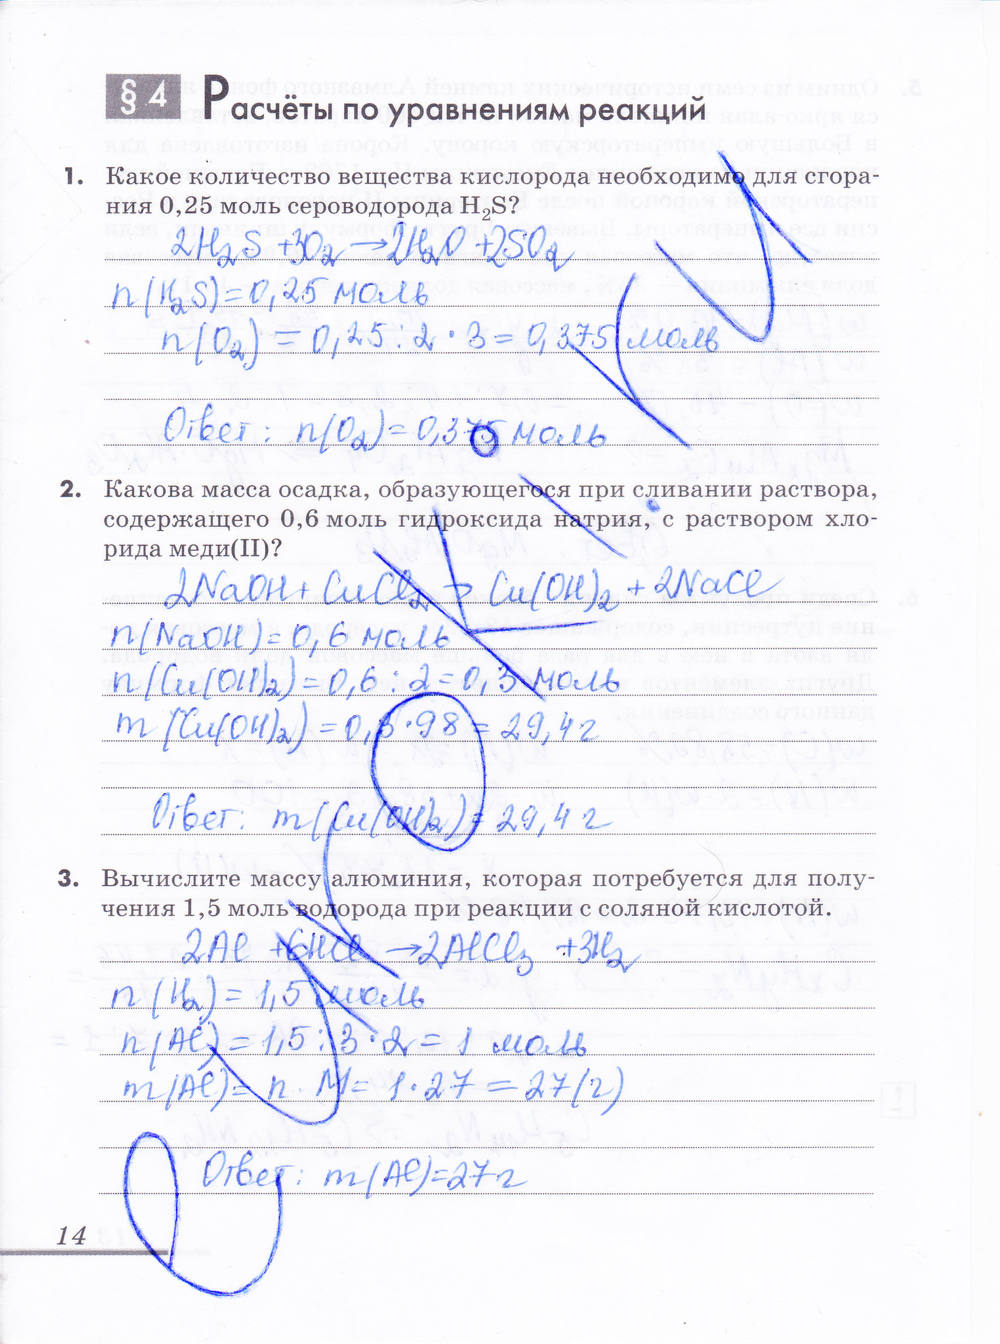 § 4 Расчёты по уравнениям реакций
1. Какое количество вещества кислорода необходимо для сгора-
ния 0,25 моль сероводорода H₂S?
2H₂S + 3O₂ → 2H₂O + 2SO₂
n(H₂S) = 0,25 моль
n(O₂) = 0,25 : 2 · 3 = 0,375 моль
Ответ: n(O₂) = 0,375 моль
2. Какова масса осадка, образующегося при сливании раствора,
содержащего 0,6 моль гидроксида натрия, с раствором хло-
рида меди(II)?
2NaOH + CuCl₂ → Cu(OH)₂ + 2NaCl
n(NaOH) = 0,6 моль
n(Cu(OH)₂) = 0,6 : 2 = 0,3 моль
m(Cu(OH)₂) = 0,3 · 98 = 29,4 г
Ответ: m(Cu(OH)₂) = 29,4 г
3. Вычислите массу алюминия, которая потребуется для полу-
чения 1,5 моль водорода при реакции с соляной кислотой.
2Al + 6HCl → 2AlCl₃ + 3H₂
n(H₂) = 1,5 моль
n(Al) = 1,5 : 3 · 2 = 1 моль
m(Al) = n · M = 1 · 27 = 27 (г)
Ответ: m(Al) = 27 г
14